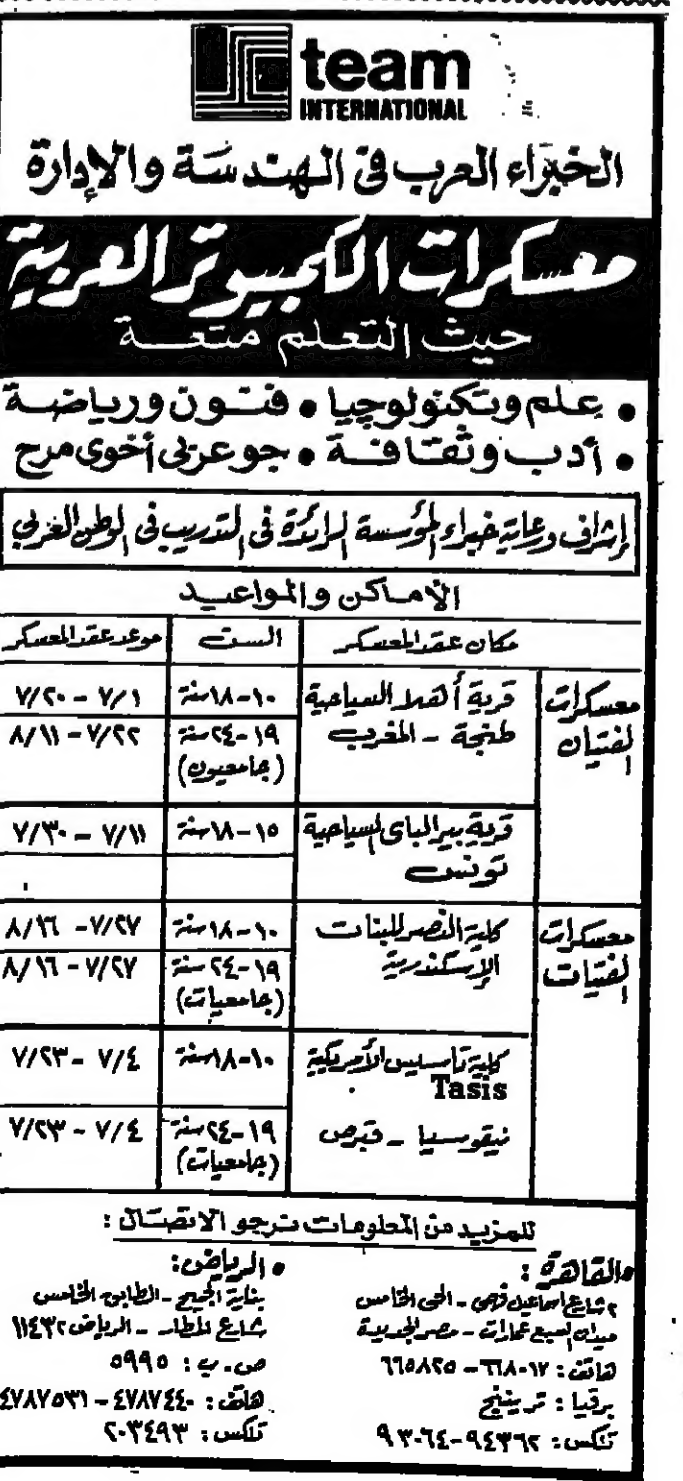 team
INTERNATIONAL
الخبراء العرب في الهندسة والإدارة
معسكرات الكمبيوتر العربية
حيث التعلم متعة
• علم وتكنولوجيا • فنون ورياضة
• أدب وثقافة • جو عربي أخوي مرح
إشراف ورعاية خبراء المؤسسة الرائدة في التدريب في الوطن العربي
الأماكن والمواعيد
مكان عقد المعسكر السن موعد عقد المعسكر
معسكرات الفتيان
قرية أهلا السياحية ١٠-١٨ سنة ٧/١ - ٧/٢٠
طنجة - المغرب ١٩-٢٤ سنة ٧/٢٢ - ٨/١١
(جامعيون)
قرية بير الباى السياحية ١٥-١٨ سنة ٧/١١ - ٧/٣٠
تونس
معسكرات الفتيات
كلية النصر للبنات ١٠-١٨ سنة ٧/٢٧ - ٨/١٦
الإسكندرية ١٩-٢٤ سنة ٧/٢٧ - ٨/١٦
(جامعيات)
كلية تاسيس الأمريكية ١٠-١٨ سنة ٧/٤ - ٧/٢٣
Tasis
نيقوسيا - قبرص ١٩-٢٤ سنة ٧/٤ - ٧/٢٣
(جامعيات)
للمزيد من المعلومات نرجو الاتصال :
• القاهرة :
٢ شارع اسماعيل فهمى - الحى الخامس
ميدان السبع عمارات - مصر الجديدة
هاتف : ٦٦٨٠١٧ - ٦٦٥٨٢٥
برقيا : ترينينج
تلكس : ٩٤٣٦٢-٩٣٠٦٤
• الرياض :
بناية الجميح - الطابق الخامس
شارع المطار - الرياض ١١٤٣٢
ص . ب : ٥٩٩٥
هاتف : ٤٧٨٧٤٤٠ - ٤٧٨٧٥٣١
تلكس : ٢٠٣٤٩٣